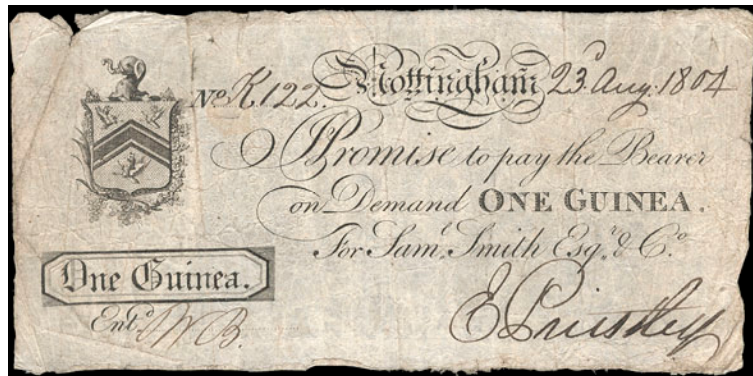 Nº K122. Nottingham 23ᵈ Aug. 1804
I Promise to pay the Bearer
on Demand ONE GUINEA.
For Samˡ. Smith Esqʳ. & Cº.
One Guinea.
Entᵈ. WB.
E Priestley